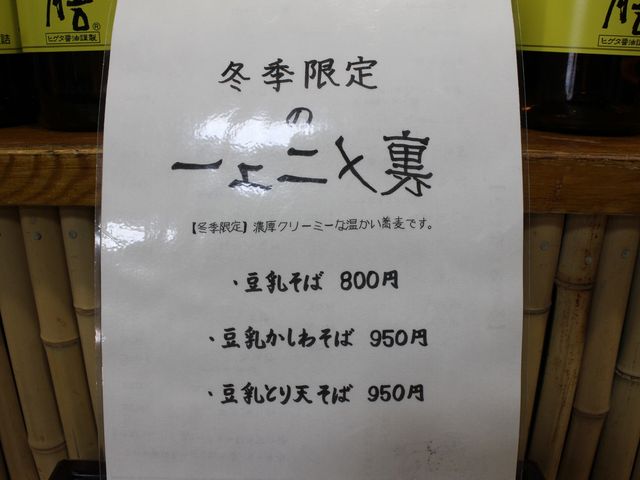 ヒゲタ醤油謹製
冬季限定
の
裏メニュー
【冬季限定】濃厚クリーミーな温かい蕎麦です。
・豆乳そば 800円
・豆乳かしわそば 950円
・豆乳とり天そば 950円